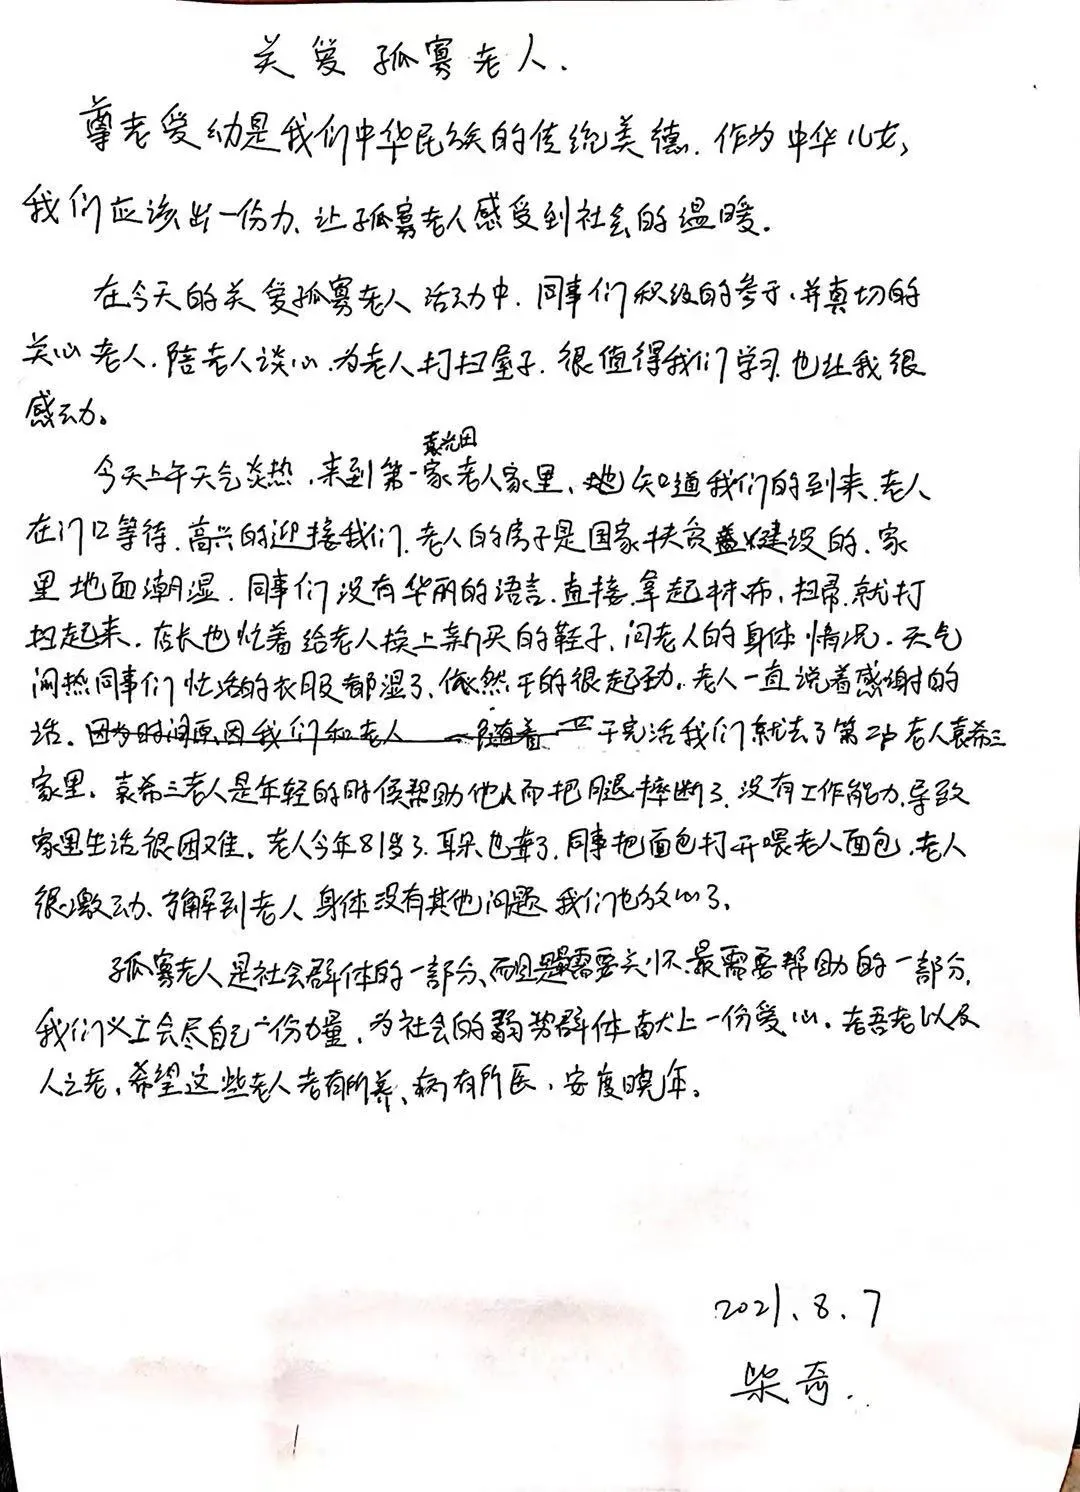 关爱孤寡老人.
尊老爱幼是我们中华民族的传统美德.作为中华儿女,
我们应该出一份力、让孤寡老人感受到社会的温暖.
在今天的关爱孤寡老人活动中.同事们积极的参于,并真切的
关心老人.陪老人谈心.为老人打扫屋子.很值得我们学习.也让我很
感动。
袁光田
今天上午天气炎热,来到第一家老人家里、知道我们的到来.老人
在门口等待.高兴的迎接我们.老人的房子是国家扶贫建设的.家
里地面潮湿.同事们没有华丽的语言.直接拿起抹布,扫帚.就打
扫起来.店长也忙着给老人换上新买的鞋子,问老人的身体情况.天气
闷热同事们忙活的衣服都湿了、依然干的很起劲.老人一直说着感谢的
话.因为时间原因我们和老人 随着 干完活我们就去了第2户老人袁希三
家里.袁希三老人是年轻的时候帮助他人而把腿摔断了.没有工作能力.导致
家里生活很困难。老人今年81岁了.耳朵也聋了.同事把面包打开喂老人面包.老人
很激动、了解到老人身体没有其他问题我们也放心了.
孤寡老人是社会群体的一部分、而且是最需要关怀.最需要帮助的一部分.
我们义工会尽自己一份力量,为社会的弱势群体献上一份爱心.老吾老以及
人之老,希望这些老人老有所养、病有所医,安度晚年。
2021.8.7
柴奇.